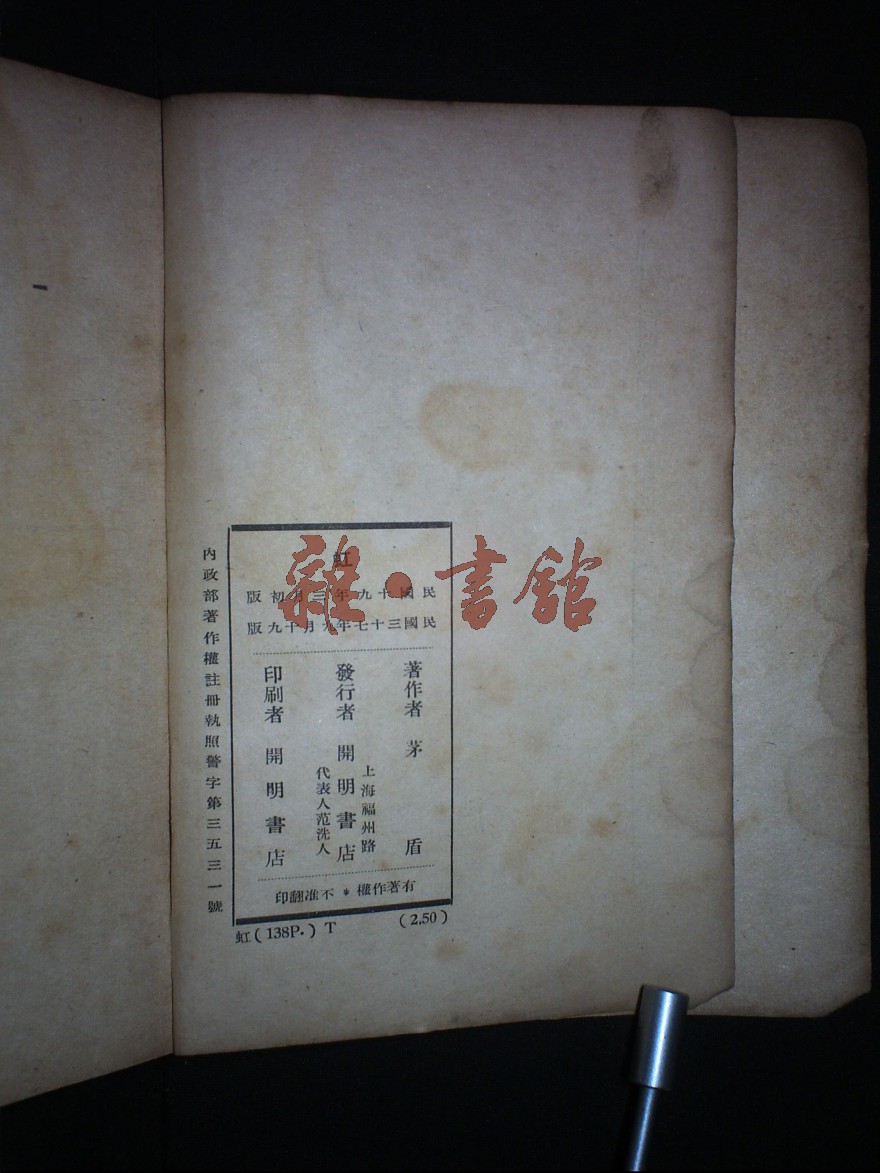 虹
民國十九年三月初版
民國三十七年九月十九版
著作者 茅盾
上海福州路
發行者 開明書店
代表人范洗人
印刷者 開明書店
有著作權＊不准翻印
內政部著作權註冊執照警字第三五三一號
虹(138P.) T (2.50)
雜·書館